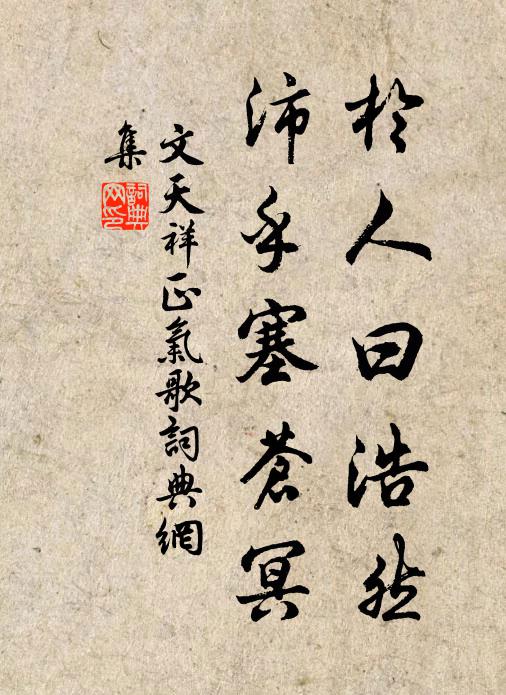 於人曰浩然
沛乎塞蒼冥
文天祥正氣歌詞典網
集
詞典網印